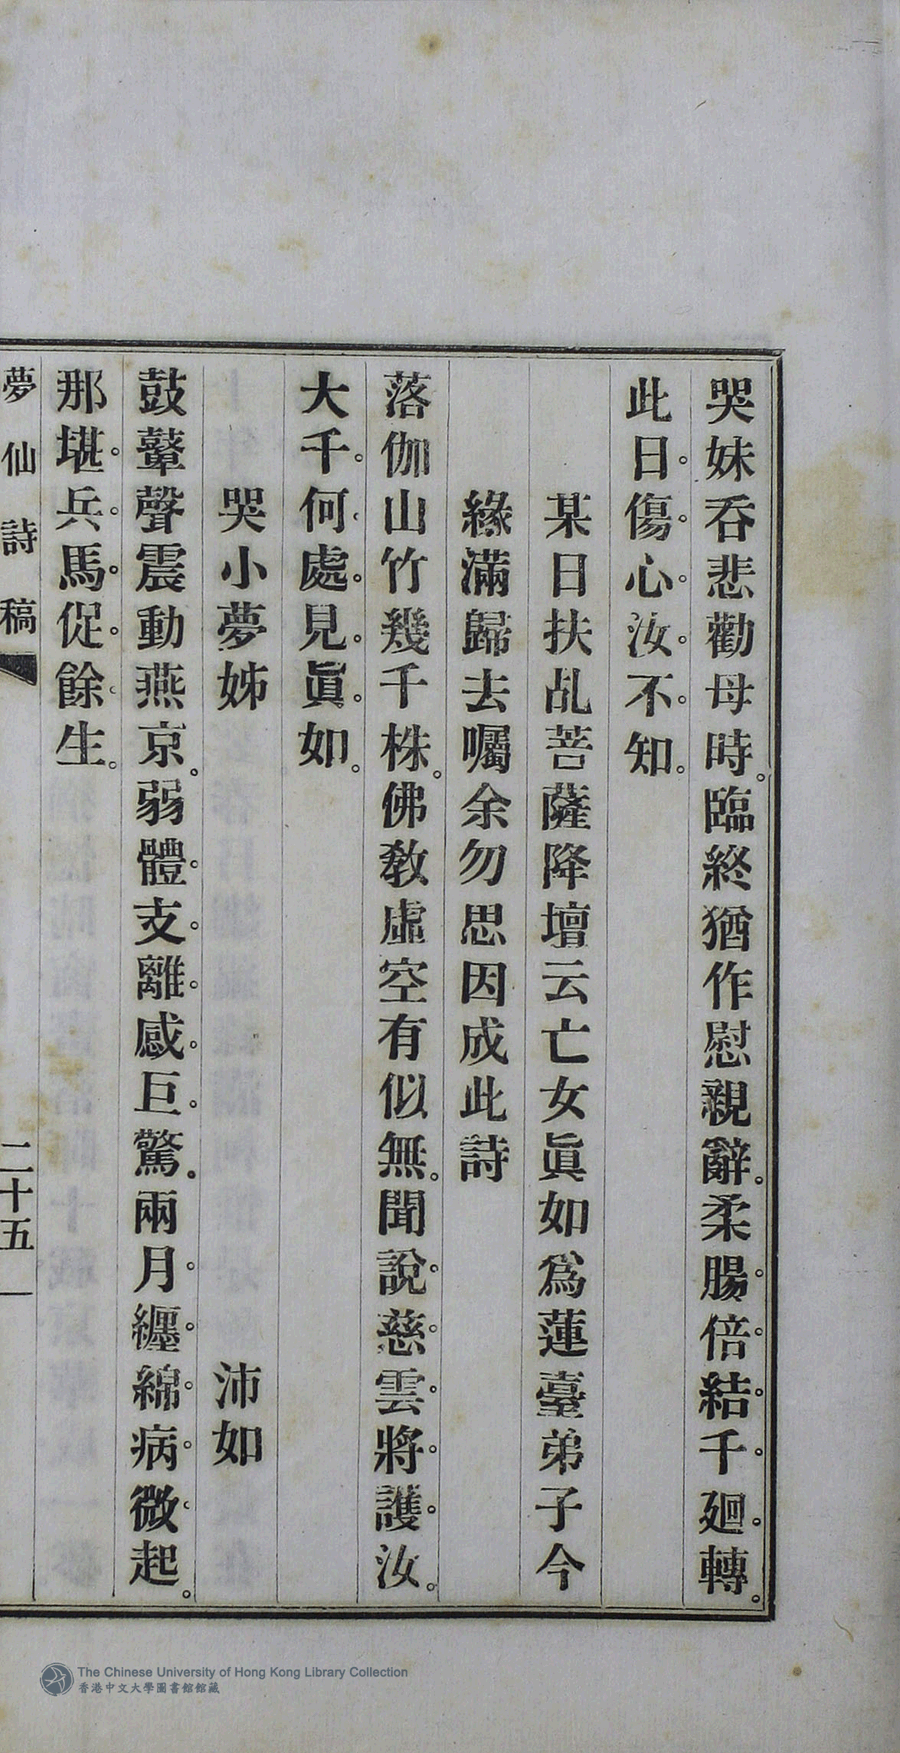 哭妹吞悲勸母時。臨終猶作慰親辭。柔腸倍結千廻轉。
此日傷心汝不知。
某日扶乩菩薩降壇云亡女眞如爲蓮臺弟子今
緣滿歸去囑余勿思因成此詩
落伽山竹幾千株。佛敎虛空有似無。聞說慈雲將護汝。
大千何處見眞如。
哭小夢姊 沛如
鼓鼙聲震動燕京。弱體支離感巨驚。兩月纏綿病微起。
那堪兵馬促餘生。
夢仙詩稿 二十五
The Chinese University of Hong Kong Library Collection
香港中文大學圖書館館藏